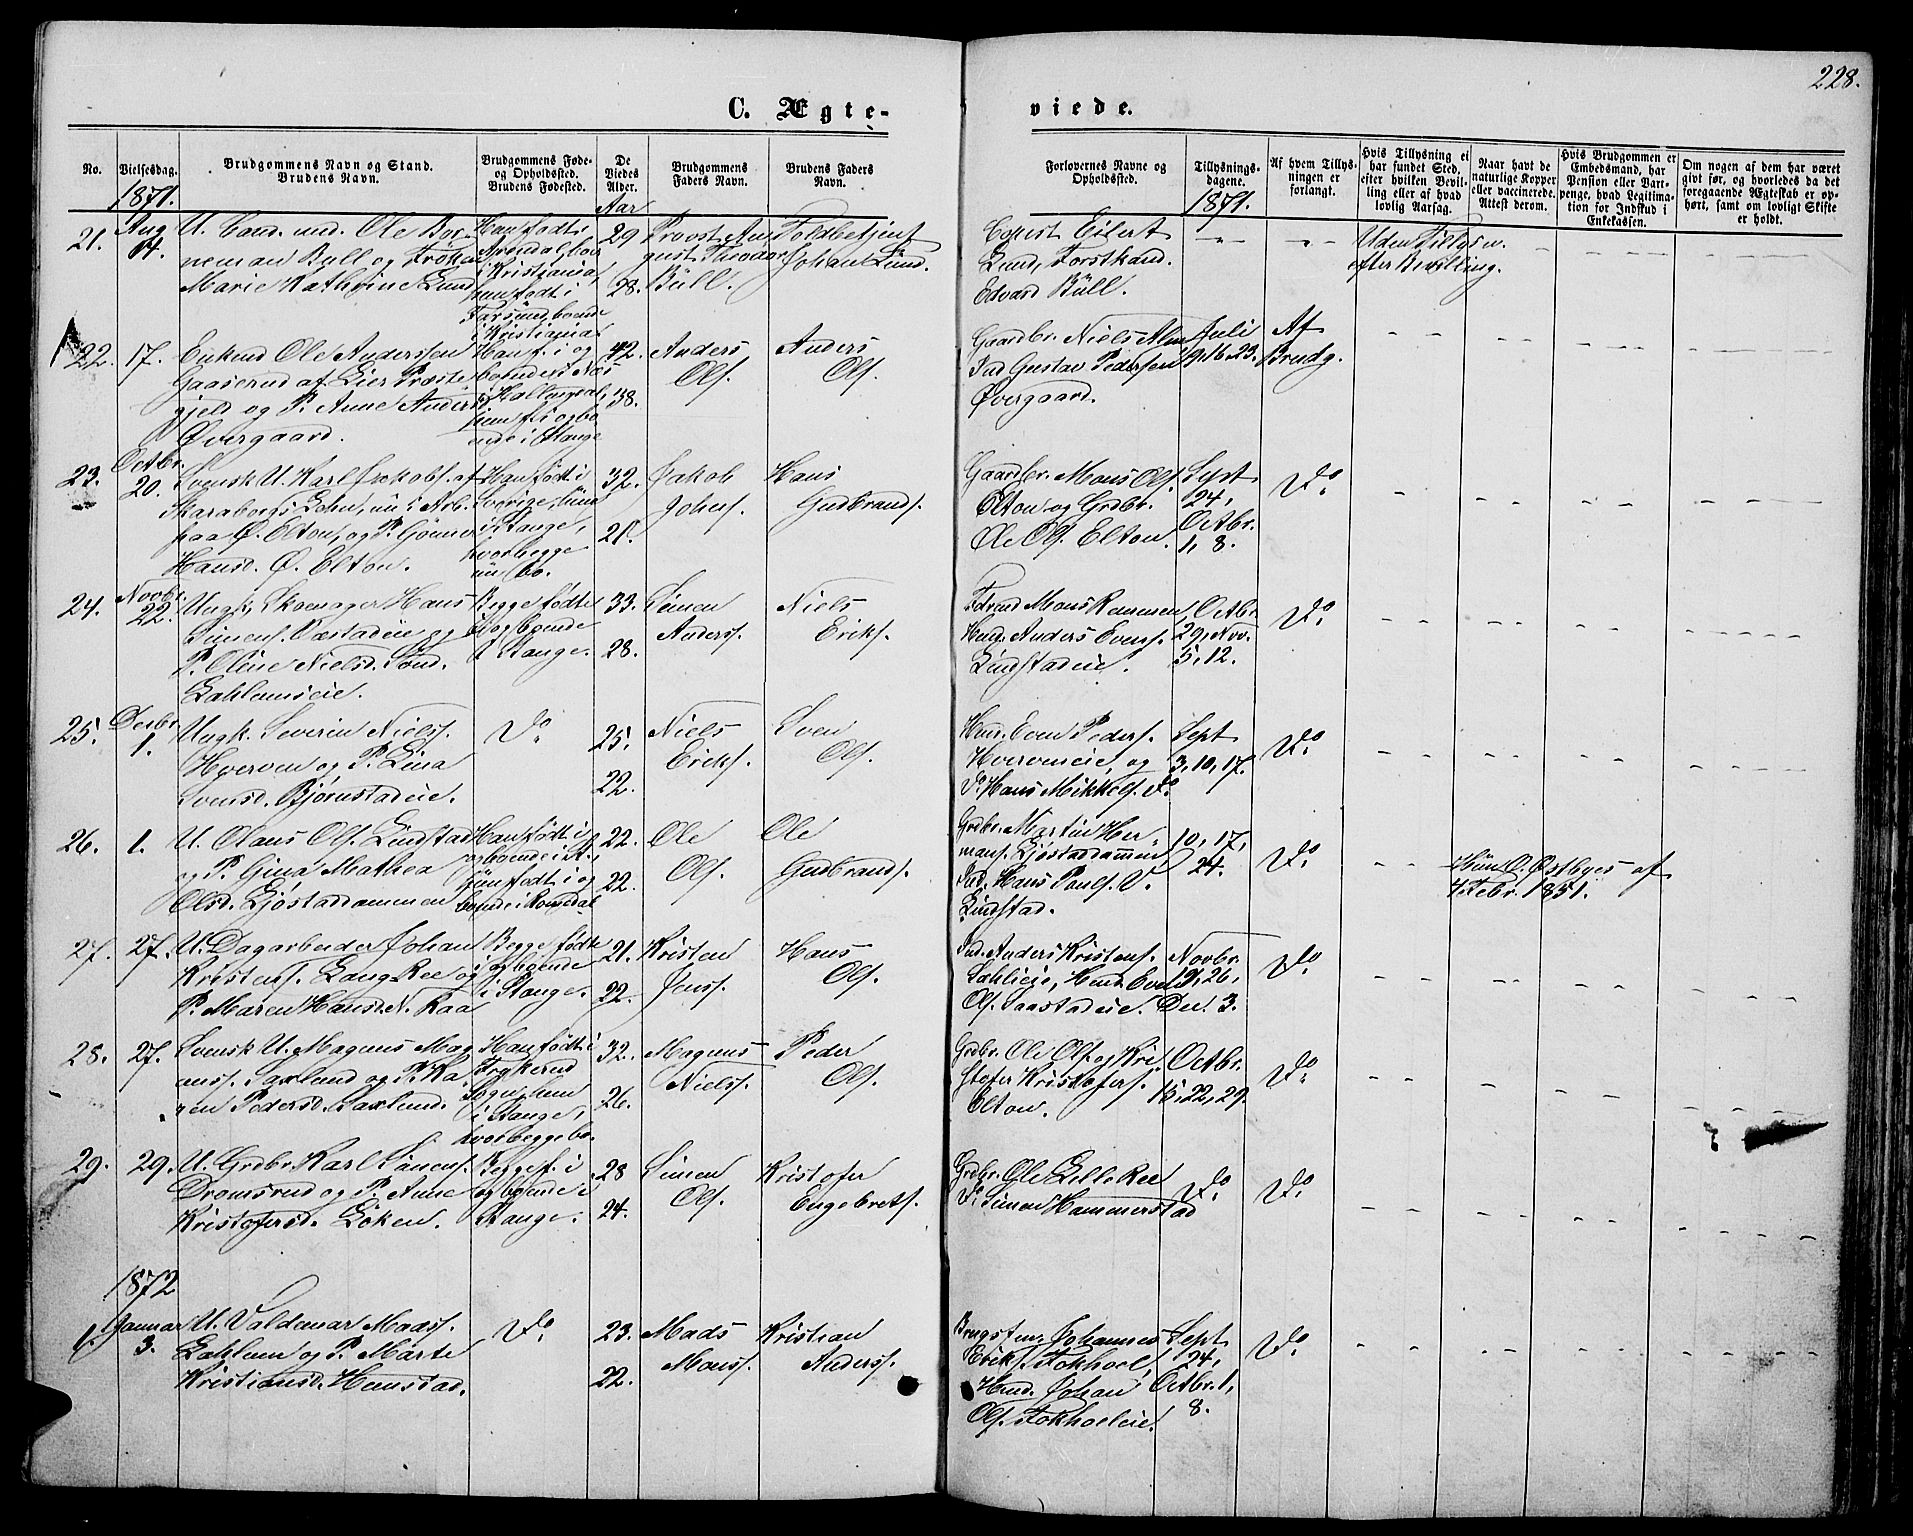 228.
C. Ægteviede.
No.
Vielsesdag.
Brudgommens Navn og Stand.
Brudens Navn.
Brudgommens Føde-
og Opholdssted.
Brudens Fødested.
De
Viedes
Alder.
Brudgommens
Faders Navn.
Brudens Faders
Navn.
Forlovernes Navne og
Opholdssted.
Tillysnings-
dagene.
Af hvem Tillys-
ningen er
forlangt.
Hvis Tillysning ei
har fundet Sted,
efter hvilken Bevil-
ling eller af hvad
lovlig Aarsag.
Naar havt de
naturlige Kopper
eller vaccinerede.
Attest derom.
Hvis Brudgommen er
Embedsmand, har
Pension eller Vart-
penge, hvad Legitima-
tion for Indskud i
Enkekassen.
Om nogen af dem har været
gift før, og hvorledes da det
foregaaende Ægteskab er op-
hørt, samt om lovligt Skifte
er holdt.
1871.
Aar
1871.
21.
Aug
14.
U. Cand. med. Ole Bor-
neman Bull og Frøken
Marie Kathrine Lund
Han født i
Arendal, bor
i Kristiania,
hun født i
Farsund, boende
i Kristiania
29
28.
Provst Au-
gust Theodor
Büll.
Toldbetjent
Johan Lund.
Eilert
Lund, Forstkand.
Edvard Büll.
Uden Tillysn.
efter Bevilling.
22.
17.
Enkmd Ole Anderssen
Gaaserud af Lier Præste-
gjeld og P. Anne Anders
Øvergaard.
Han f. i og
boende i Næs
i Hallingdal,
hun f. i og bo-
ende i Stange
42.
38.
Anders
Ols.
Anders
Ols.
Gaardbr. Niels Alm
Ind Gustav Pedersen
Øvergaard.
Juli
9, 16, 23.
Af
Brudg.
23.
Octbr.
20.
Svensk U. Karl Jakobs. af
Skaraborgs Lehn, nu i Arb.
paa Ø. Elton, og P. Gunner
Hansd. Ø. Elton.
Han født i
Sverige, hun
i Stange,
hvor begge
nu bo.
32.
21.
Jakob
Johns.
Hans
Gudbrands.
Gaardbr. Mons Ols.
Elton og Grdbr.
Ole Ols. Elton.
Sept
24,
Octbr.
1, 8.
Do.
24.
Novbr.
22.
Ungk. Skomager Hans
Simens. Sæstadeie og
P. Oline Nielsd. Sønd.
Lahlumseie.
Begge fødte
og boende
i Stange.
33.
28.
Simen
Anders.
Niels
Eriks.
Mons Rommen,
Hmd. Anders Evens.
Lindstadeie.
Octbr
29, Nov.
5, 12.
Do
25.
Decbr.
1.
Ungk. Severin Niels.
Hverven og P. Lina
Svensd. Bjørnstadeie.
Do
25.
22.
Niels
Eriks.
Sven
Ols.
Hmd. Even Peders.
Hverveneie, og
Do Hans Mikkels. Do
Sept
3, 10, 17.
Do
26.
1.
U. Olaus Ols. Lindstad
og P. Gina Mathea
Olsd. Ljøstaddammen
Han født i
og boende i St.,
hun født i og
boende i Romedal
22.
22.
Ole
Ols.
Ole
Gudbrands.
Grdbr. Martin Her-
mans. Ljøstaddammen,
Ind. Hans Pauls. V.
Lindstad.
10, 17,
24.
Do
Hun O. Østbyes af
4. Febr. 1851.
27.
27.
U. Dagarbeider Johan
Kristens. Lang-Ree og
P. Maren Hansd. N. Raa
Begge fødte
i og boende
i Stange.
21.
22.
Kristen
Jens.
Hans
Ols.
Ind. Anders Kristens.
Sahlieie, Hmd. Even
Ols. Saastadeie.
Novbr.
19, 26,
Dec. 3.
Do
28.
27.
Svensk U. Magnus Mag-
nuss. Saxlund og P. Ka-
ren Pedersd. Saxlund.
Han født i
Frykerud
Sogn, hun
i Stange,
hvor begge bo.
32.
26.
Magnus
Niels.
Peder
Ols.
Grdbr. Ole Ols. og Kri-
stofer Kristofers.
Elton.
Octbr.
15, 22, 29.
Do.
29.
29.
U. Grdbr. Karl Simens.
Dromsrud og P. Anne
Kristofersd. Løken.
Begge f. i
og boende i
Stange.
28
24.
Simen
Ols.
Kristofer
Engebrets.
Grdbr. Ole Lille Ree
Do. Simen Hammerstad
Do.
Do.
1872
1.
Januar
3.
U. Valdemar Mads.
Lahlum og P. Marte
Kristiansd. Hemstad.
Do.
23.
22.
Mads
Mons.
Kristian
Anders.
Johannes
Eriks. Stokhoel,
Hmd. Johan
Ols. Stokhoeleie.
Sept
24,
Octbr. 1,
8.
Do.